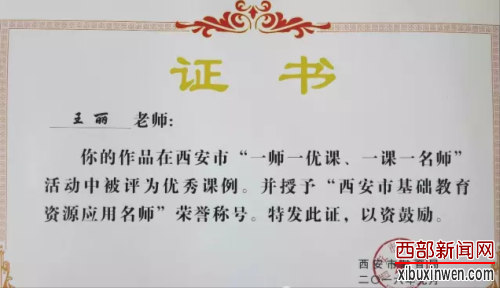 证书
王丽 老师：
你的作品在西安市“一师一优课、一课一名师”
活动中被评为优秀课例。并授予“西安市基础教育
资源应用名师”荣誉称号。特发此证，以资鼓励。
西安市
二〇一六年
西部新闻网
xibuxinwen.com